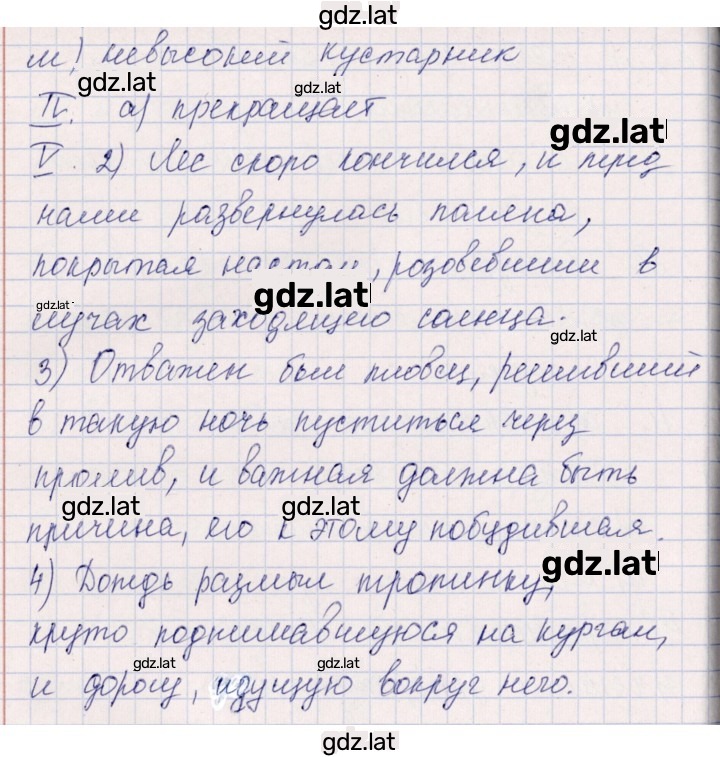 gdz.lat
м) невысокий кустарник
gdz.lat gdz.lat
IV. а) прекращает
gdz.lat
V. 2) Лес скоро кончился, и перед
нами развернулась поляна,
покрытая настом, розовевшим в
gdz.lat gdz.lat
лучах заходящего солнца.
gdz.lat
3) Отважен был пловец, решивший
в такую ночь пуститься через
пролив, и важная должна быть
gdz.lat gdz.lat
причина, его к этому побудившая.
gdz.lat
4) Дождь размыл тропинку,
круто поднимавшуюся на курган,
gdz.lat gdz.lat
и дорогу, идущую вокруг него.
gdz.lat